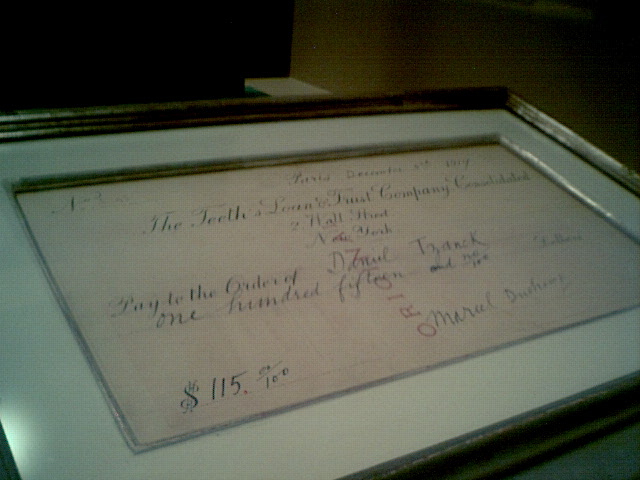 Paris December 3rd 1919
No
The Teeth's Loan & Trust Company Consolidated
2 Wall Street
New York
Pay to the Order of Daniel Tzanck
one hundred fifteen and no/100 Dollars
ORI
Marcel Duchamp
$ 115. 00/100